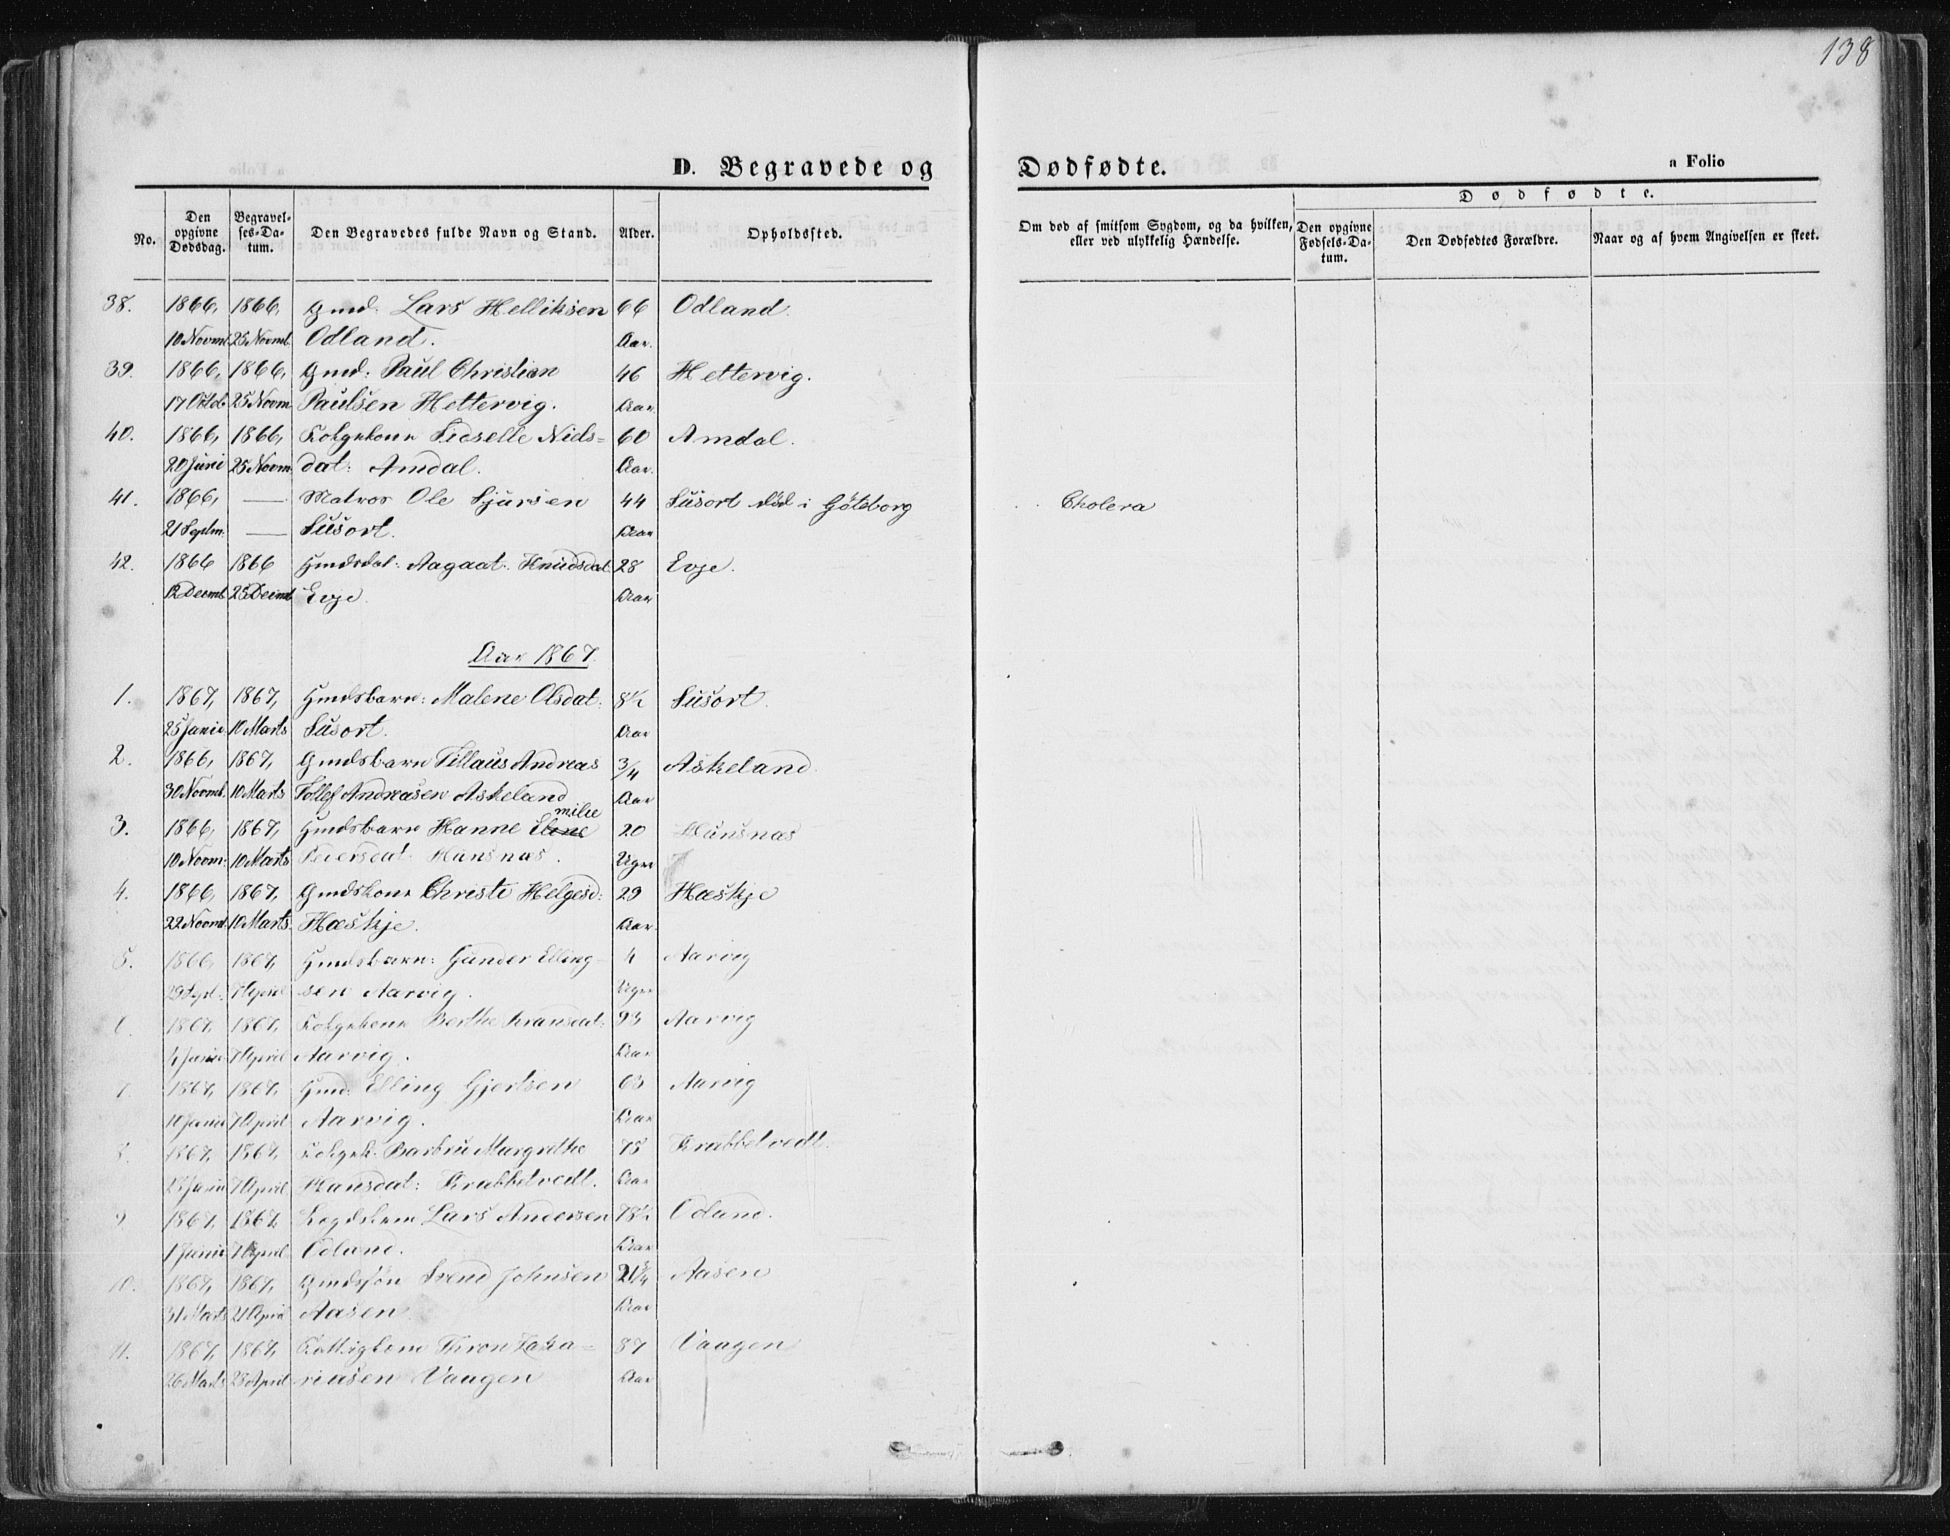 138
D. Begravede og Dødfødte.
a Folio
Dødfødte.
No.
Den opgivne Dødsdag.
Begravelses-Datum.
Den Begravedes fulde Navn og Stand.
Alder.
Opholdssted.
Om død af smitsom Sygdom, og da hvilken, eller ved ulykkelig Hændelse.
Den opgivne Fødsels-Datum.
Den Dødfødtes Forældre.
Naar og af hvem Angivelsen er skeet.
38. 1866, 1866, Gmd. Lars Helliksen 66 Odland.
10 Novmb. 25 Novmb. Odland. Aar.
39. 1866, 1866, Gmd. Paul Christian 46 Hettervig.
17 Octob. 25 Novm. Paulsen Hettervig. Aar.
40. 1866, 1866, Niels= 60 Amdal.
20 Juni 25 Novm. dat: Amdal. Aar.
41. 1866, — Matros Ole Sjursen 44 Susort død i Gøteborg Cholera
21 Septm. — Susort. Aar
42. 1866 1866 Gmdsdat: Aagaat. Knudsdat. 28 Evje.
12 Decmb. 25 Decmb. Evje. Aar
Aar 1867.
1. 1867, 1867, Hmdsbarn: Malene Olsdat: 8½ Susort.
25 Janu 10 Marts Susort. Aar
2. 1866, 1867, Gmdsbarn Tillaus Andreas 3/4 Askeland.
30 Novmb. 10 Marts Tollef Andreasen Askeland Aar
milie
3. 1866, 1867, Hmdsbarn Hanne Elene 20 Hansnæs
10 Novm. 10 Marts Peiersdat. Hansnæs. Uger
4. 1866, 1867, Gmdskone Christi Helgesd: 29 Hæskje
22 Novmb. 10 Marts. Hæskje. Aar.
5. 1866, 1867, Hmdsbarn: Gunder Elling- 4 Aarvig
29 Sept. 7 April sen Aarvig. Uger
6. 1867, 1867, Berthe 93 Aarvig
Janu 7 April Aarvig. Aar
7. 1867, 1867, Gmd. Elling Gjertsen 63 Aarvig
10 Janu 7 April Aarvig. Aar
8. 1867, 1867, Barbru Margrethe 75 Krabbetvedt.
Janu 7 April Hansdat: Krabbetvedt. Aar
9. 1867, 1867, Lars Andersen 78½ Odland.
1 Janu 7 April Odland. Aar
10. 1867, 1867, Gmdssøn Svend Johnsen 21 3/4 Aasen
31 Marts 21 April Aasen Aar
11. 1867, 1867, Thron Zaka= 87 Vaagen
26 Marts 28 April riasen Vaagen Aar